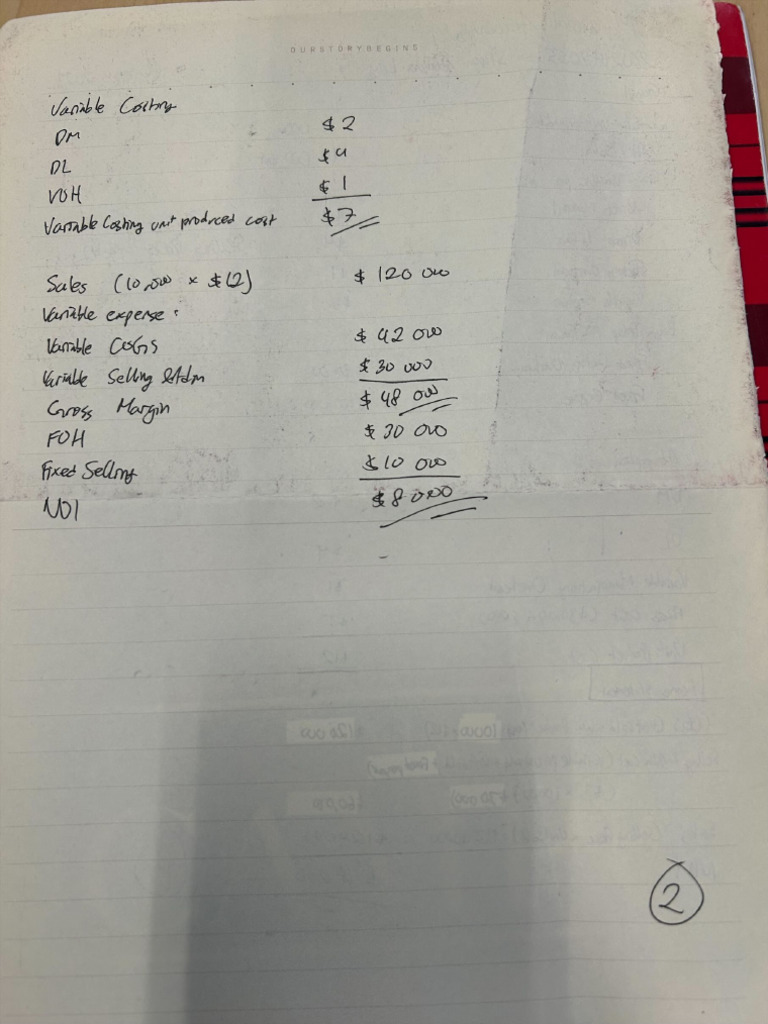 OURSTORYBEGINS
Variable Costing
DM $2
DL $4
VOH $1
Variable Costing unit produced cost $7
Sales (10,000 x $12) $120 000
Variable expense:
Variable COGS $42 000
Variable Selling &Adm $30 000
Gross Margin $48 000
FOH $30 000
Fixed Selling $10 000
NOI $8 000
2